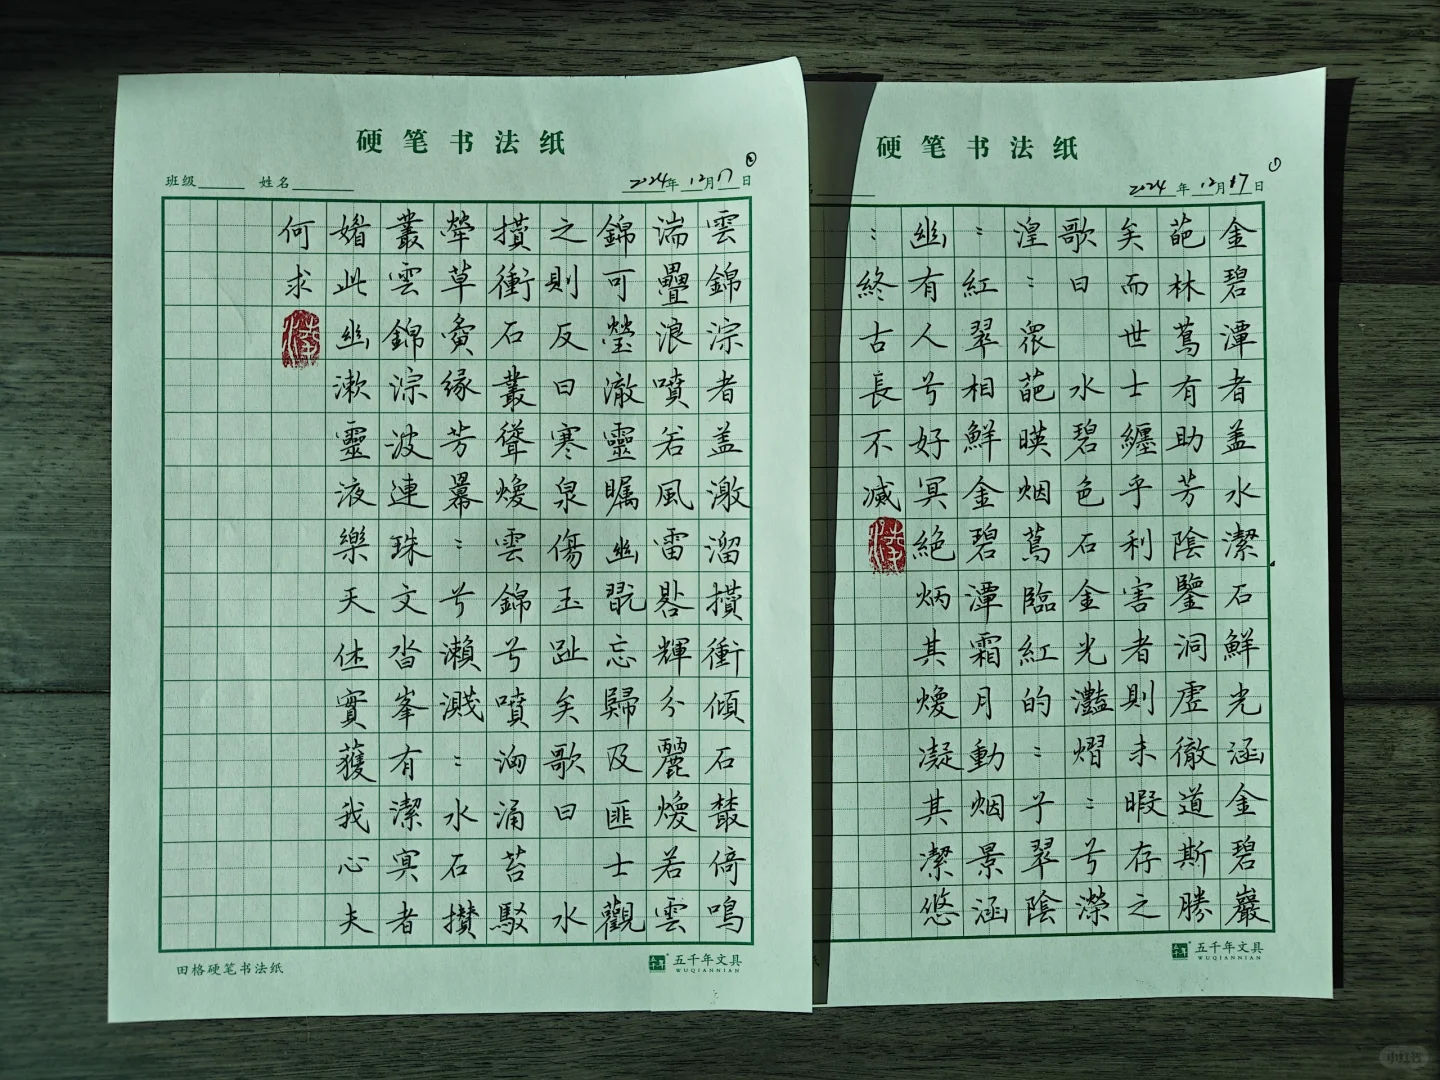 硬笔书法纸
①
2024年12月17日
金碧潭者盖水潔石鮮光涵金碧巖
葩林蔦有助芳陰鑒洞虛徹道斯勝
矣而世士纏乎利害者則未暇存之
歌曰 水碧色石金光灩熠:兮濴
湟:眾葩暎烟蔦臨紅的:兮翠陰
:紅翠相鮮金碧潭霜月動烟景涵
幽有人兮好冥絕炳其煥凝其潔悠
:終古長不滅
五千年文具
WUQIANNIAN
硬笔书法纸
②
班级 姓名 2024年12月17日
雲錦淙者盖激溜攢衝傾石藂倚鳴
湍疊浪噴若風雷輝分麗煥若雲
錦可瑩澈靈矚幽翫忘歸及匪士觀
之則反曰寒泉傷玉趾矣歌曰 水
攢衝石叢聳煥雲錦兮噴洶涌苔駁
犖草夤緣芳冪:兮瀨濺:水石攢
叢雲錦淙波連珠文沓峯有潔冥者
媚此幽漱靈液樂天休實獲我心夫
何求
田格硬笔书法纸
五千年文具
WUQIANNIAN
小红书